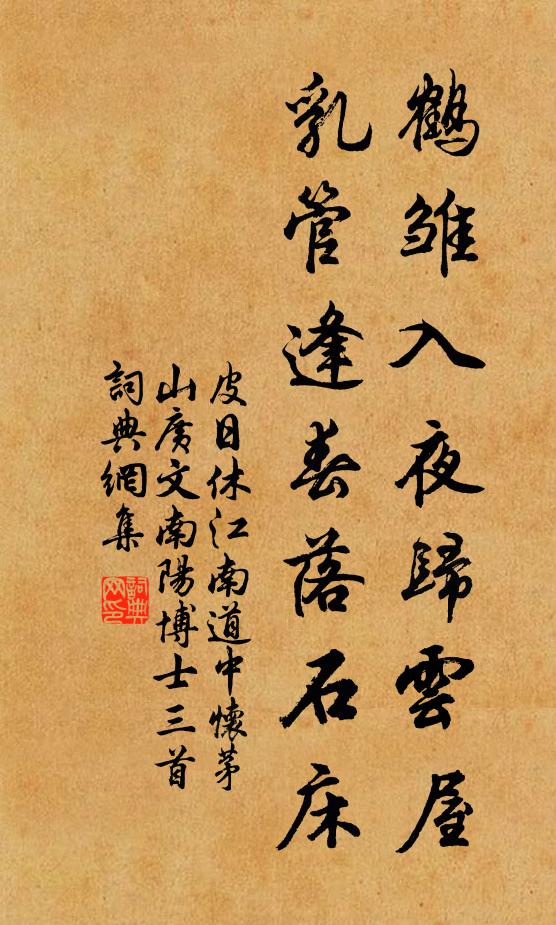 鶴雛入夜歸雲屋
乳管逢春落石床
皮日休江南道中懷茅
山廣文南陽博士三首
詞典網集
詞典網印